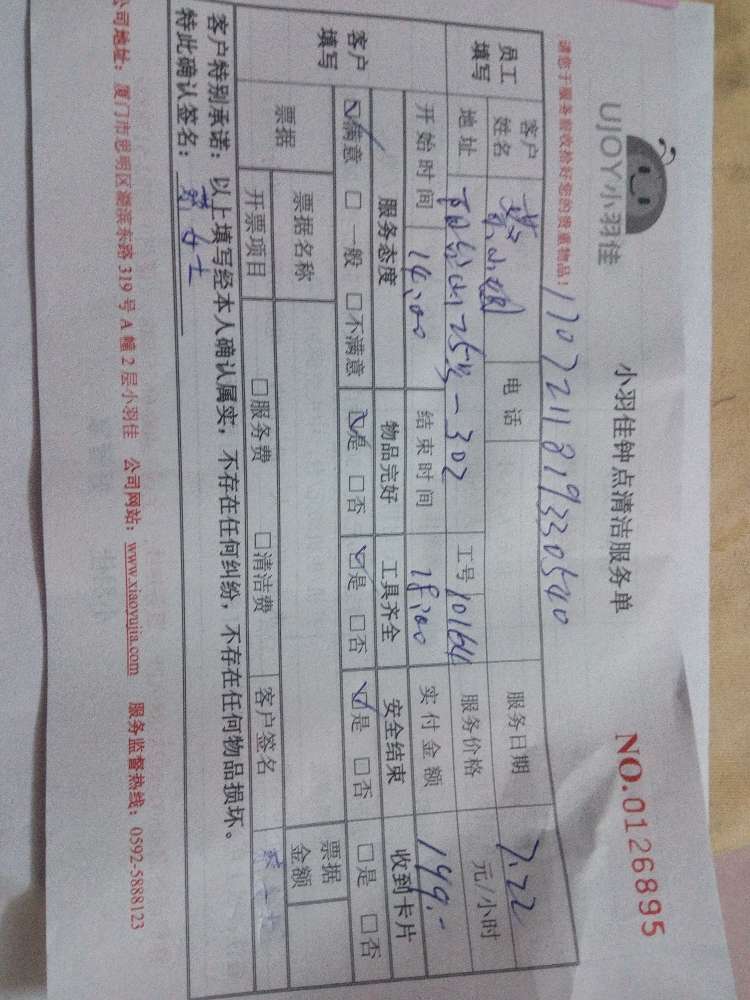 UJOY小羽佳
小羽佳钟点清洁服务单
NO.0126895
请您于服务前收拾好您的贵重物品!
1707211819330540
员工填写 客户姓名 电话 服务日期 7.22
地址 25号-302 工号 10164 服务价格 元/小时
开始时间 14:00 结束时间 18:00 实付金额 149.-
客户填写 服务态度 物品完好 工具齐全 安全结束 收到卡片
☑满意 □一般 □不满意 ☑是 □否 ☑是 □否 ☑是 □否 □是 □否
票据 票据名称 票据金额
开票项目 □服务费 □清洁费 客户签名
客户特别承诺：以上填写经本人确认属实，不存在任何纠纷，不存在任何物品损坏。
特此确认签名：
公司地址：厦门市思明区湖滨东路319号A幢2层小羽佳 公司网站：www.xiaoyujia.com 服务监督热线：0592-5888123